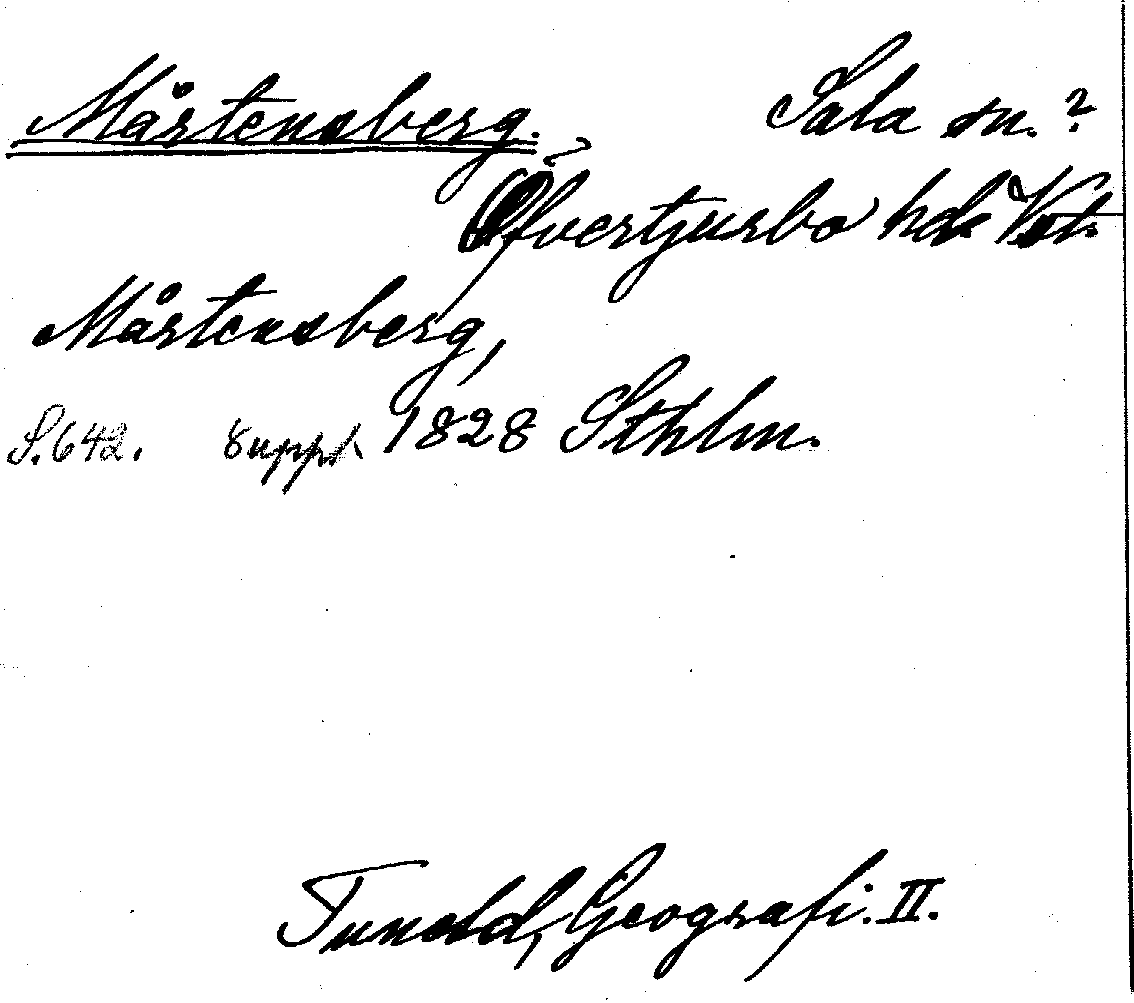 Mårtensberg. Sala sn. ?
? Öfvertjurbo hd. Vstm.
Mårtensberg,
S. 642. Suppl. 1828 Sthlm.
Tuneld, Geografi. II.